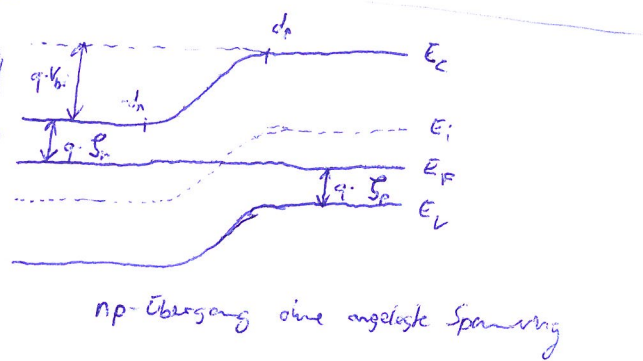 dₚ
E_C
q·V_bi
-dₙ
E_i
q·ζₙ
E_F
q·ζₚ
E_V
np-Übergang ohne angelegte Spannung